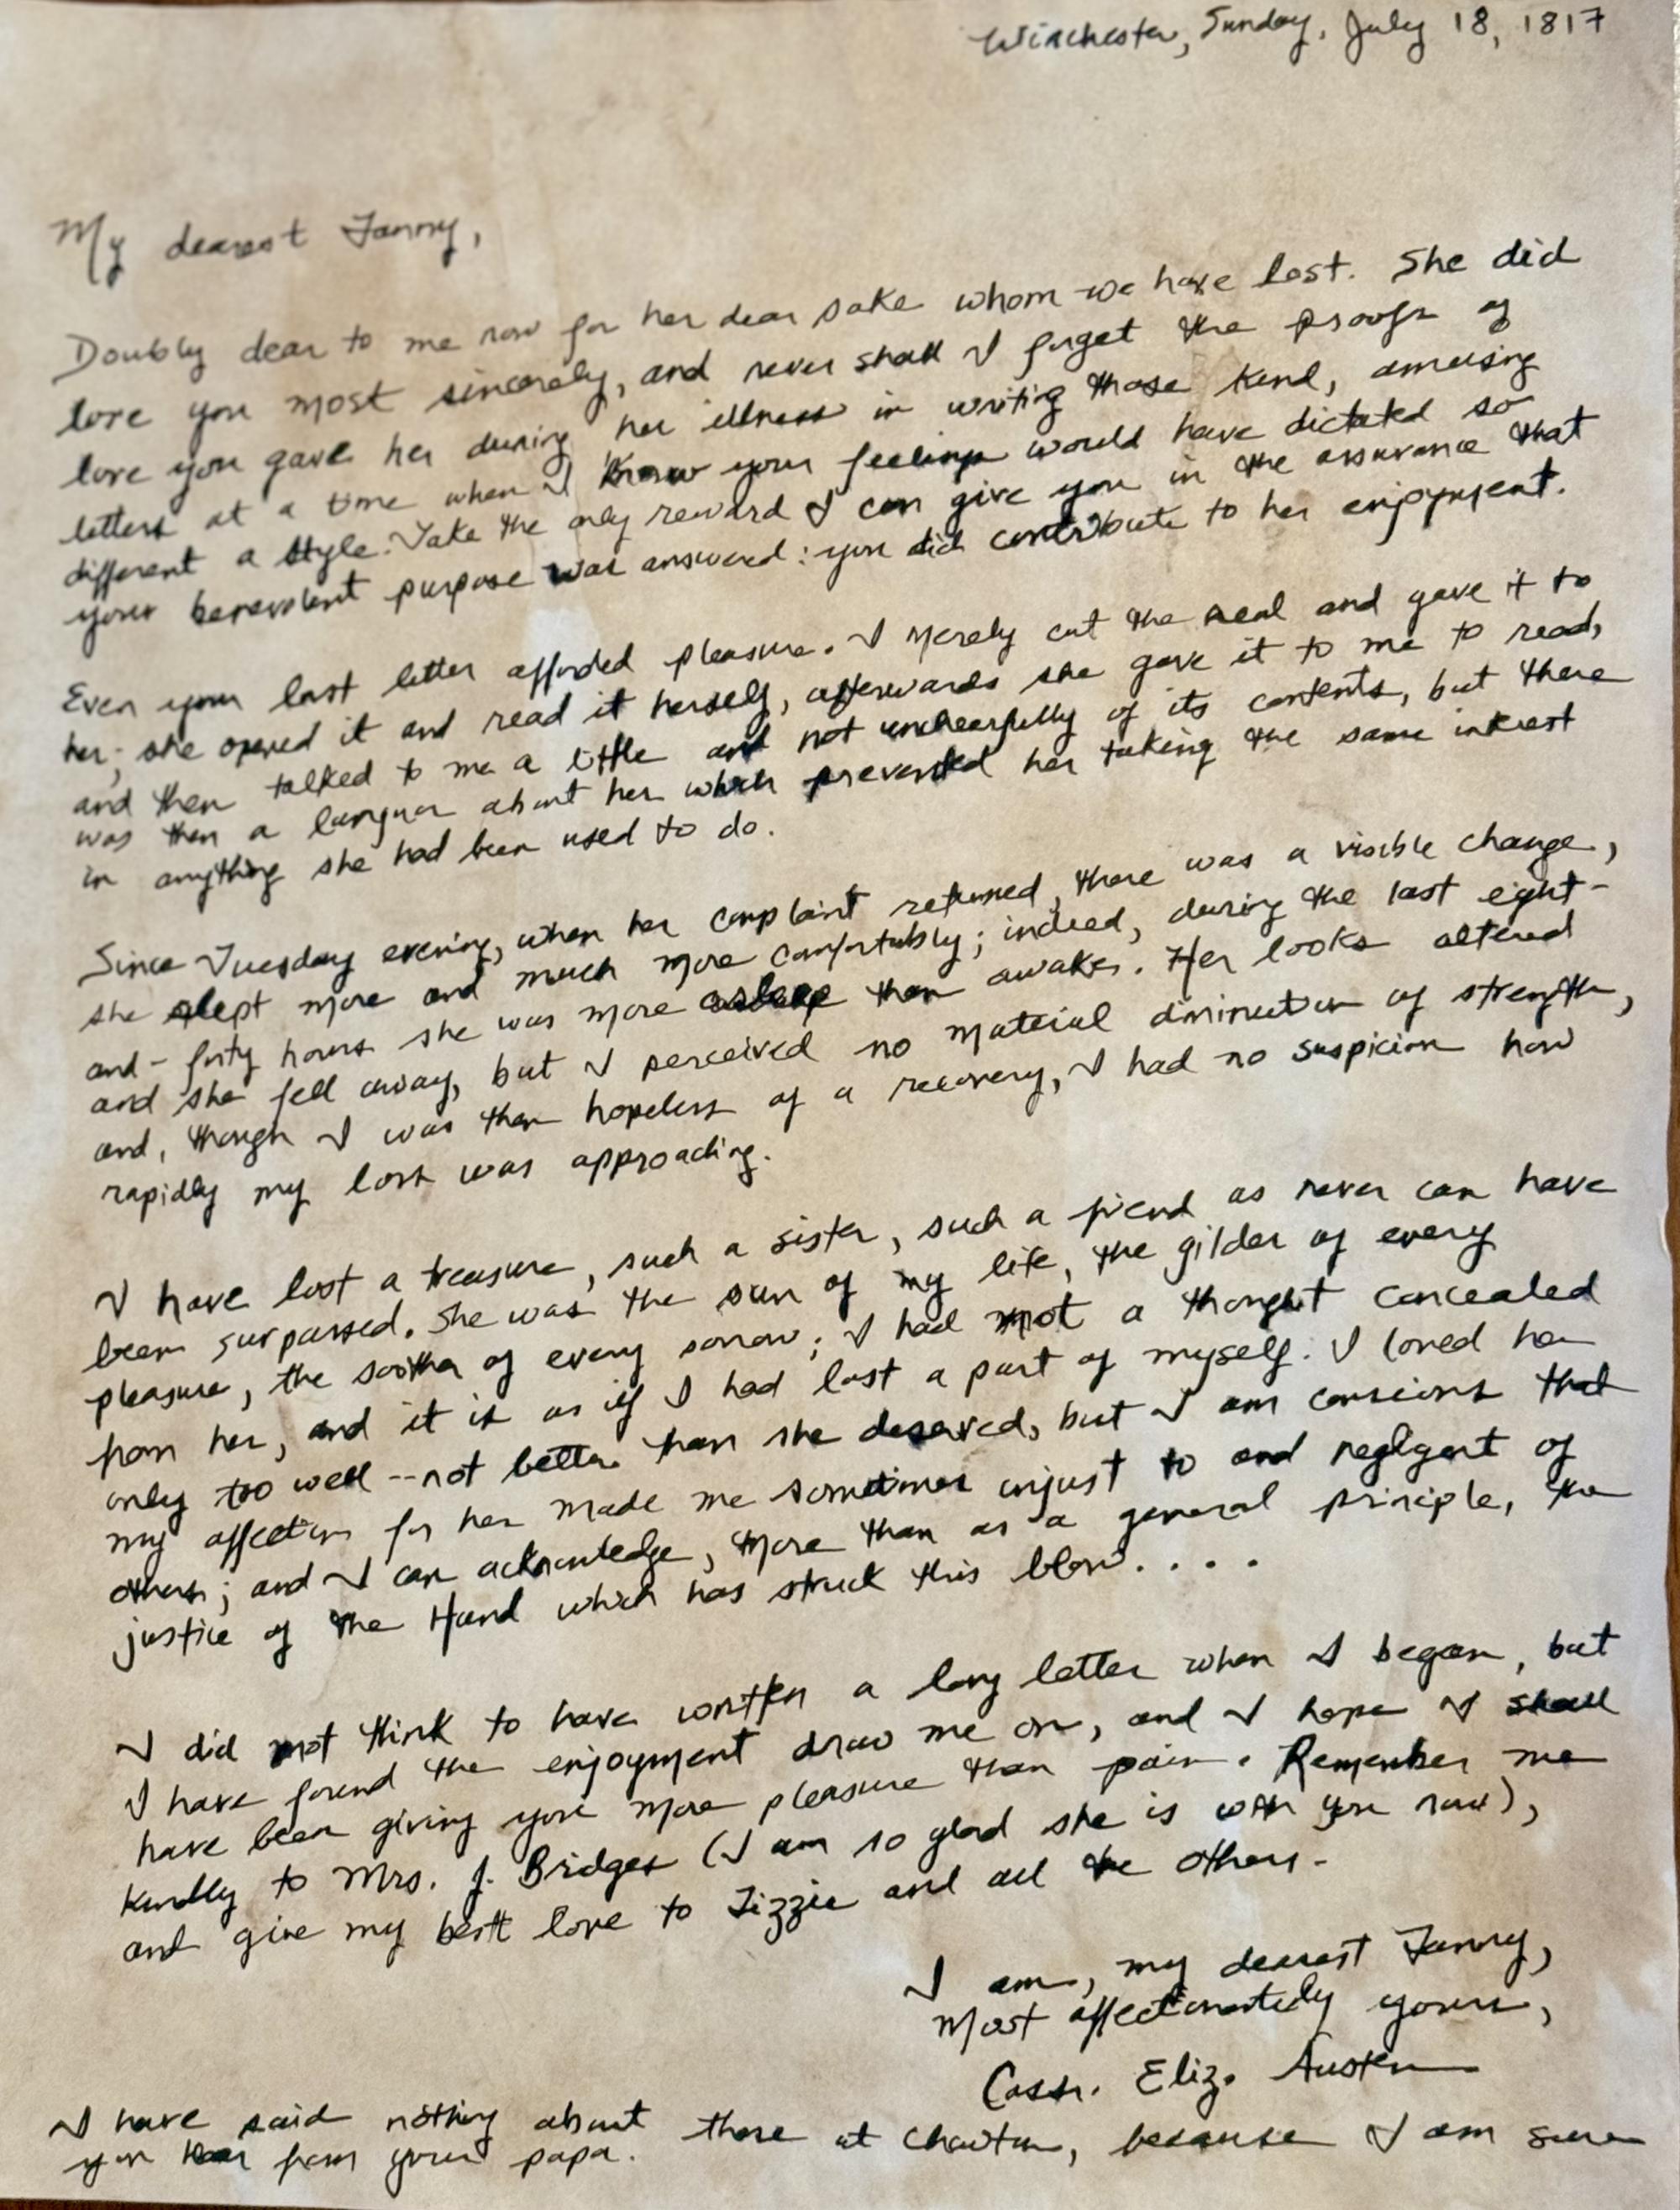 Winchester, Sunday, July 18, 1817
My dearest Fanny,
Doubly dear to me now for her dear sake whom we have lost. She did
love you most sincerely, and never shall I forget the proofs of
love you gave her during her illness in writing those kind, amusing
letters at a time when I know your feelings would have dictated so
different a style. Take the only reward I can give you in the assurance that
your benevolent purpose was answered: you did contribute to her enjoyment.
Even your last letter afforded pleasure. I merely cut the seal and gave it to
her; she opened it and read it herself, afterwards she gave it to me to read,
and then talked to me a little and not uncheerfully of its contents, but there
was then a languor about her which prevented her taking the same interest
in anything she had been used to do.
Since Tuesday evening, when her complaint returned, there was a visible change,
she slept more and much more comfortably; indeed, during the last eight-
and-forty hours she was more asleep than awake. Her looks altered
and she fell away, but I perceived no material diminution of strength,
and, though I was then hopeless of a recovery, I had no suspicion how
rapidly my loss was approaching.
I have lost a treasure, such a sister, such a friend as never can have
been surpassed. She was the sun of my life, the gilder of every
pleasure, the soother of every sorrow; I had not a thought concealed
from her, and it is as if I had lost a part of myself. I loved her
only too well -- not better than she deserved, but I am conscious that
my affection for her made me sometimes unjust to and negligent of
others; and I can acknowledge, more than as a general principle, the
justice of the Hand which has struck this blow. . . .
I did not think to have written a long letter when I began, but
I have found the enjoyment draw me on, and I hope I shall
have been giving you more pleasure than pain. Remember me
kindly to Mrs. J. Bridges (I am so glad she is with you now),
and give my best love to Lizzie and all the others.
I am, my dearest Fanny,
Most affectionately yours,
Cass. Eliz. Austen
I have said nothing about those at Chawton, because I am sure
you hear from your papa.